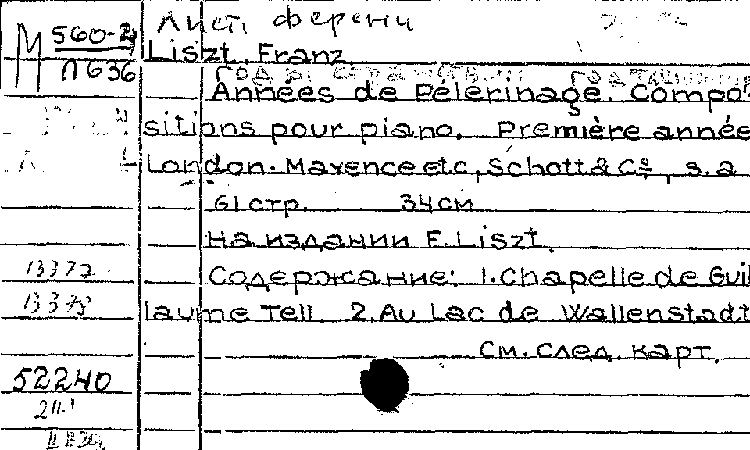 Лист, Ференц
М 560-2
Л636
Liszt, Franz.
Années de Pèlerinage. Compo-
sitions pour piano. Première année
London-Mayence etc, Schott & Cº, s.a
61 стр. 34 см
На издании F. Liszt.
Содержание: 1. Chapelle de Guil
laume Tell. 2. Au Lac de Wallenstadt
См. след. карт.
13372
52240